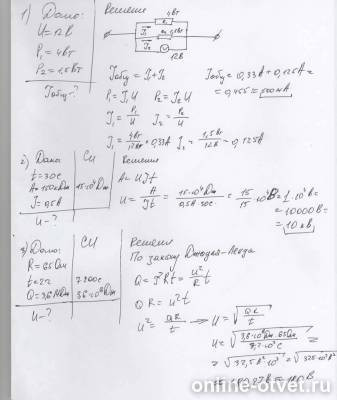 1) Дано:
U=12В
P₁=4Вт
P₂=1,5Вт
Iобщ-?
Решение
4Вт
I₁
I₂
12В
Iобщ=I₁+I₂
P₁=I₁U P₂=I₂U
I₁=P₁/U I₂=P₂/U
I₁=4Вт/12В=0,33А I₂=1,5В/12В=0,125А
Iобщ=0,33А+0,125А=
=0,455≈500мА
2) Дано
t=30с
A=150кДж
I=0,5А
U-?
СИ
15·10⁴Дж
Решение
A=UIt
U=A/It=15·10⁴Дж/0,5А·30с=15/15·10⁴В=1·10⁴В=
=10000В=
=10кВ
3) Дано:
R=65Ом
t=2ч
Q=3,6МДж
U-?
СИ
7200с
3,6·10⁶Дж
Решение
По закону Джоуля-Ленца
Q=I²Rt=U²/R t
QR=U²t
U²=QR/t → U=√QR/t
U=√3,6·10⁶Дж·65Ом/7,2·10³с=
=√32,5·10³=√325·10²
online-otvet.ru